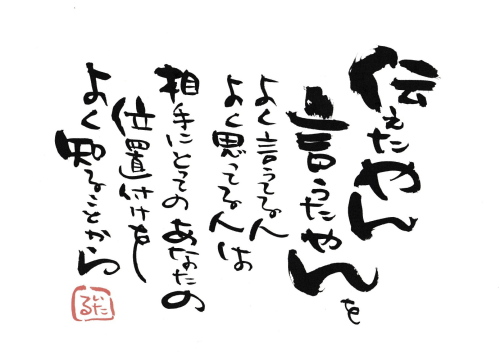 伝えたやん
言うたやんを
よく言うてるん
よく思ってるんは
相手にとってのあなたの
位置付けを
よく知ることから
いたる